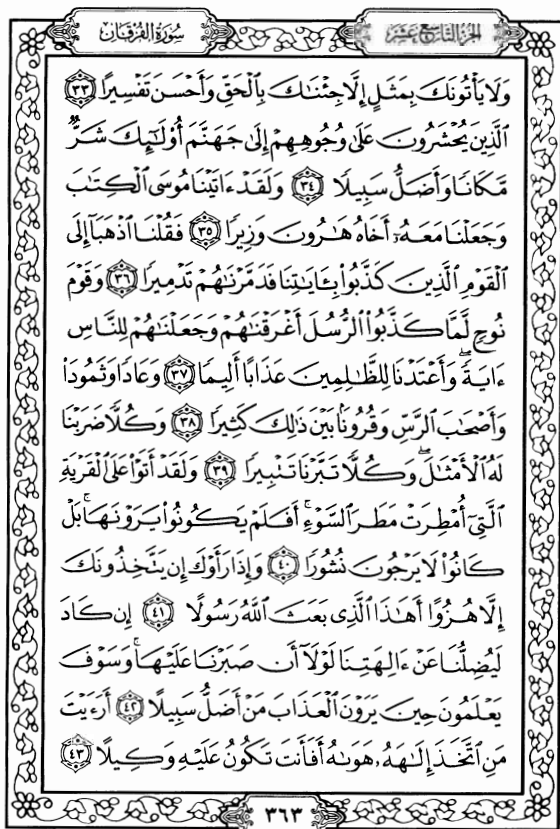 سُورَةُ الْفُرْقَانِ
الجُزْءُ التَّاسِعُ عَشَرَ
وَلَا يَأْتُونَكَ بِمَثَلٍ إِلَّا جِئْنَٰكَ بِٱلْحَقِّ وَأَحْسَنَ تَفْسِيرًا ٣٣
ٱلَّذِينَ يُحْشَرُونَ عَلَىٰ وُجُوهِهِمْ إِلَىٰ جَهَنَّمَ أُو۟لَٰٓئِكَ شَرٌّ
مَّكَانًا وَأَضَلُّ سَبِيلًا ٣٤ وَلَقَدْ ءَاتَيْنَا مُوسَى ٱلْكِتَٰبَ
وَجَعَلْنَا مَعَهُۥٓ أَخَاهُ هَٰرُونَ وَزِيرًا ٣٥ فَقُلْنَا ٱذْهَبَآ إِلَى
ٱلْقَوْمِ ٱلَّذِينَ كَذَّبُوا۟ بِـَٔايَٰتِنَا فَدَمَّرْنَٰهُمْ تَدْمِيرًا ٣٦ وَقَوْمَ
نُوحٍ لَّمَّا كَذَّبُوا۟ ٱلرُّسُلَ أَغْرَقْنَٰهُمْ وَجَعَلْنَٰهُمْ لِلنَّاسِ
ءَايَةً ۖ وَأَعْتَدْنَا لِلظَّٰلِمِينَ عَذَابًا أَلِيمًا ٣٧ وَعَادًا وَثَمُودَا۟
وَأَصْحَٰبَ ٱلرَّسِّ وَقُرُونًۢا بَيْنَ ذَٰلِكَ كَثِيرًا ٣٨ وَكُلًّا ضَرَبْنَا
لَهُ ٱلْأَمْثَٰلَ ۖ وَكُلًّا تَبَّرْنَا تَتْبِيرًا ٣٩ وَلَقَدْ أَتَوْا۟ عَلَى ٱلْقَرْيَةِ
ٱلَّتِىٓ أُمْطِرَتْ مَطَرَ ٱلسَّوْءِ ۚ أَفَلَمْ يَكُونُوا۟ يَرَوْنَهَا ۚ بَلْ
كَانُوا۟ لَا يَرْجُونَ نُشُورًا ٤٠ وَإِذَا رَأَوْكَ إِن يَتَّخِذُونَكَ
إِلَّا هُزُوًا أَهَٰذَا ٱلَّذِى بَعَثَ ٱللَّهُ رَسُولًا ٤١ إِن كَادَ
لَيُضِلُّنَا عَنْ ءَالِهَتِنَا لَوْلَآ أَن صَبَرْنَا عَلَيْهَا ۚ وَسَوْفَ
يَعْلَمُونَ حِينَ يَرَوْنَ ٱلْعَذَابَ مَنْ أَضَلُّ سَبِيلًا ٤٢ أَرَءَيْتَ
مَنِ ٱتَّخَذَ إِلَٰهَهُۥ هَوَىٰهُ أَفَأَنتَ تَكُونُ عَلَيْهِ وَكِيلًا ٤٣
٣٦٣